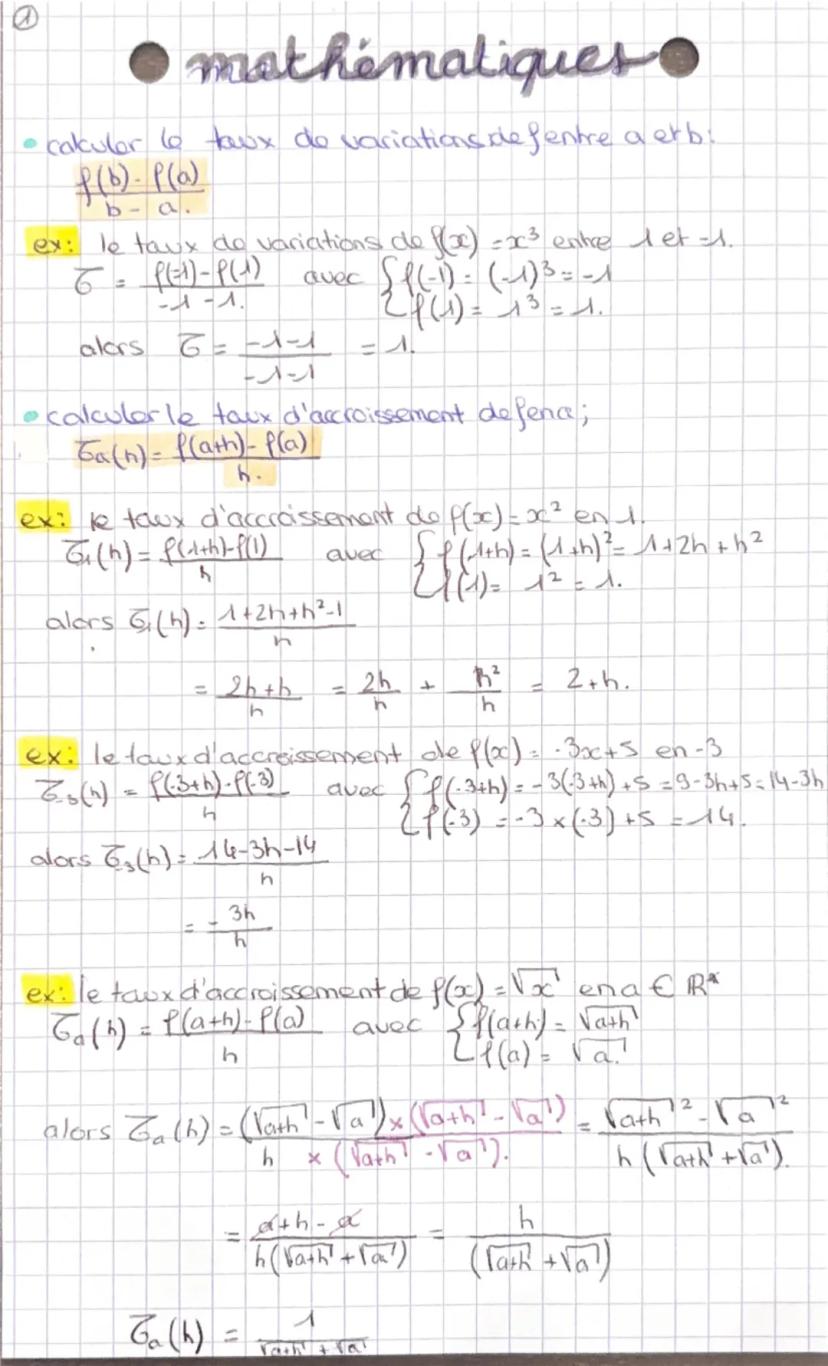 1
mathématiques
• calculer le taux de variations de f entre a et b:
f(b)-f(a)
b-a.
ex: le taux de variations de f(x) = x³ entre 1 et -1.
τ = f(-1)-f(1) / -1-1. avec { f(-1) = (-1)³ = -1
f(1) = 1³ = 1.
alors τ = -1-1 / -1-1 = 1.
• calculer le taux d'accroissement de f en a;
τa(h) = f(a+h)-f(a) / h.
ex: le taux d'accroissement de f(x) = x² en 1.
τ1(h) = f(1+h)-f(1) / h avec { f(1+h) = (1+h)² = 1+2h+h²
f(1) = 1² = 1.
alors τ1(h) = 1+2h+h²-1 / h
= 2h+h / h = 2h / h + h² / h = 2+h.
ex: le taux d'accroissement de f(x) = -3x+5 en -3
τ-3(h) = f(-3+h)-f(-3) / h avec { f(-3+h) = -3(-3+h)+5 = 9-3h+5 = 14-3h
f(-3) = -3×(-3)+5 = 14.
alors τ3(h) = 14-3h-14 / h
= -3h / h
ex: le taux d'accroissement de f(x) = √x en a ∈ ℝ*
τa(h) = f(a+h)-f(a) / h avec { f(a+h) = √a+h
f(a) = √a.
alors τa(h) = (√a+h - √a) × (√a+h - √a) / h × (√a+h - √a). = √a+h² - √a² / h(√a+h + √a).
= a+h-a / h(√a+h + √a) = h / (√a+h + √a)
τa(h) = 1 / √a+h + √a